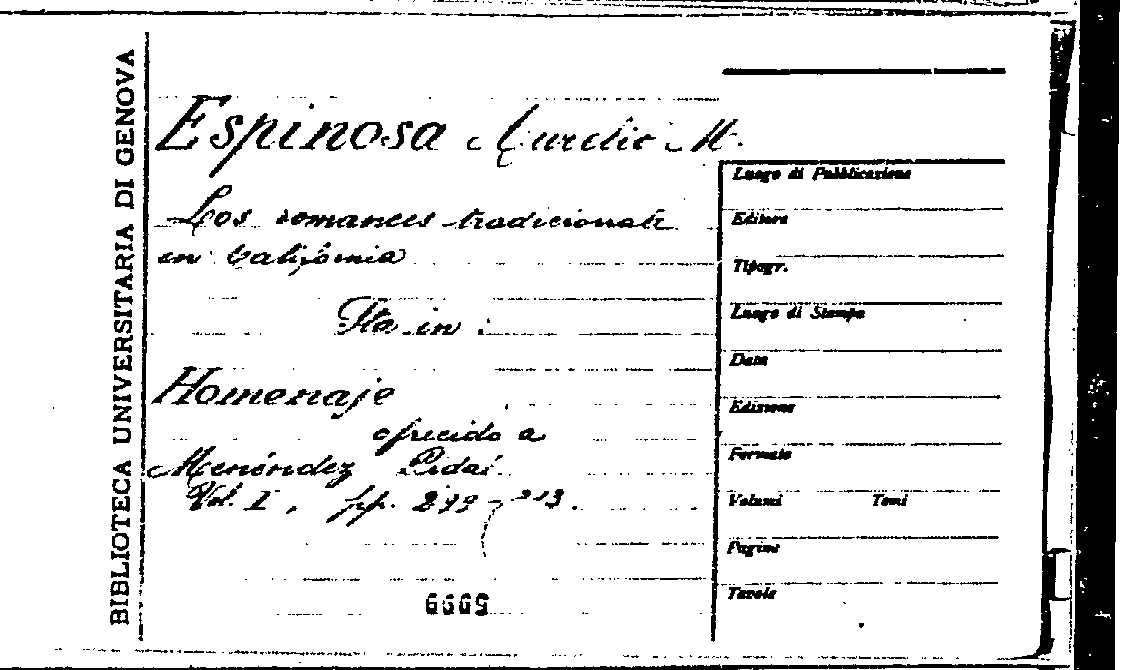 BIBLIOTECA UNIVERSITARIA DI GENOVA
Espinosa Aurelio M.
Los romances tradicionali
en California
Sta in:
Homenaje
ofrecido a
Menéndez Pidal
Vol. I, pp. 299-313.
Luogo di Pubblicazione
Editore
Tipogr.
Luogo di Stampa
Data
Edizione
Formato
Volumi Tomi
Pagine
Tavole